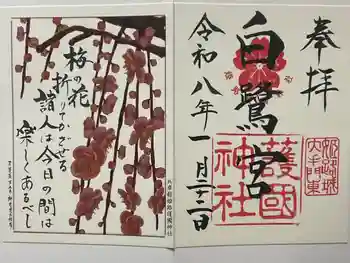 奉拝
白鷺宮
護國
神社
姫路城
大手門東
令和八年一月二十二日
梅の花
折りてかざせる
諸人は今日の間は
楽しくあるべし